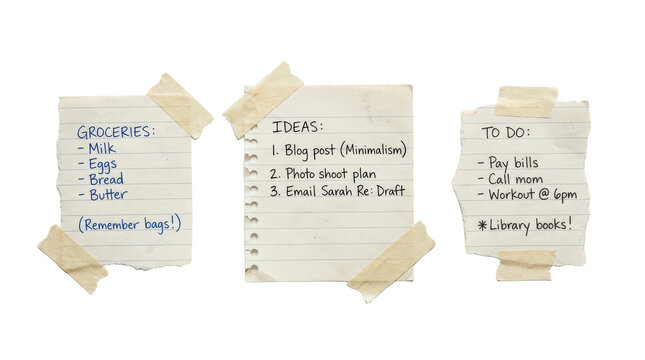 GROCERIES:
- Milk
- Eggs
- Bread
- Butter
(Remember bags!)
IDEAS:
1. Blog post (Minimalism)
2. Photo shoot plan
3. Email Sarah Re: Draft
TO DO:
- Pay bills
- Call mom
- Workout @ 6pm
*Library books!